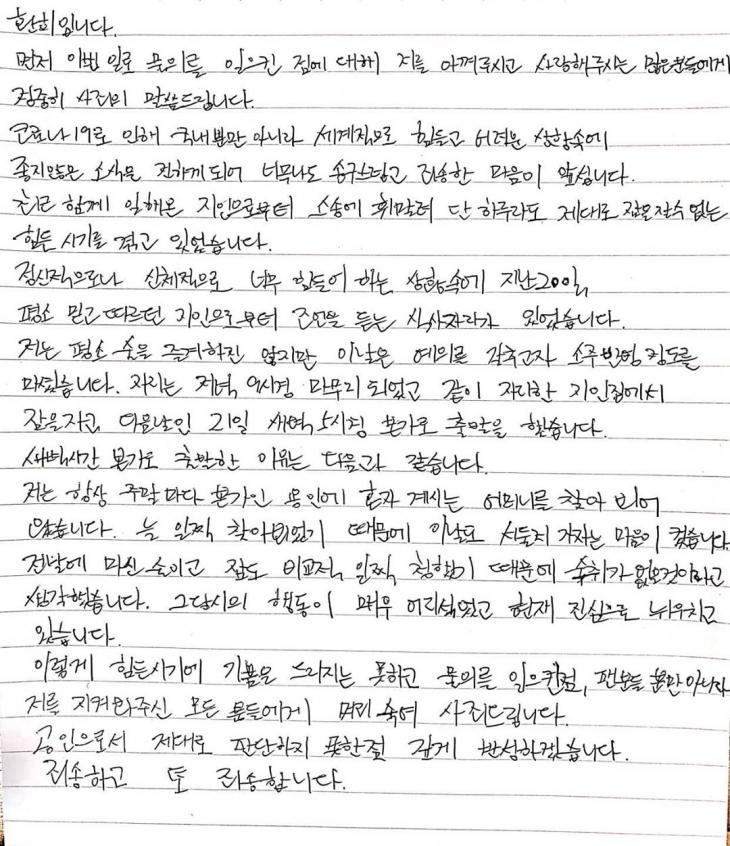 환희입니다.
먼저 이번 일로 물의를 일으킨 점에 대해 저를 아껴주시고 사랑해주시는 많은분들에게
정중히 사죄의 말씀드립니다.
코로나19로 인해 국내뿐만 아니라 세계적으로 힘들고 어려운 상황속에
좋지않은 소식을 전하게 되어 너무나도 송구스럽고 죄송한 마음이 앞섭니다.
최근 함께 일해온 지인으로부터 소송에 휘말려 단 하루라도 제대로 잠을 잘수 없는
힘든 시기를 겪고 있었습니다.
정신적으로나 신체적으로 너무 힘들어 하는 상황속에 지난20일,
평소 믿고 따르던 지인으로부터 조언을 듣는 식사자리가 있었습니다.
저는 평소 술을 즐겨하진 않지만 이날은 예의를 갖추고자 소주반병 정도를
마셨습니다. 자리는 저녁 9시경 마무리 되었고 같이 자리한 지인집에서
잠을자고 다음날인 21일 새벽 5시경 본가로 출발을 했습니다.
새벽시간 본가로 출발한 이유는 다음과 같습니다.
저는 항상 주말마다 본가인 용인에 혼자 계시는 어머니를 찾아 뵈어
왔습니다. 늘 일찍 찾아뵈었기 때문에 이날도 서둘러 가자는 마음이 컸습니다.
전날에 마신 술이고 잠도 비교적 일찍 청했기 때문에 숙취가 없을것이라고
생각했습니다. 그당시의 행동이 매우 어리석었고 현재 진심으로 뉘우치고
있습니다.
이렇게 힘든시기에 기쁨을 드리지는 못하고 물의를 일으킨점, 팬분들 뿐만아니라
저를 지켜봐주신 모든 분들에게 머리 숙여 사죄드립니다.
공인으로서 제대로 판단하지 못한점 깊게 반성하겠습니다.
죄송하고 또 죄송합니다.